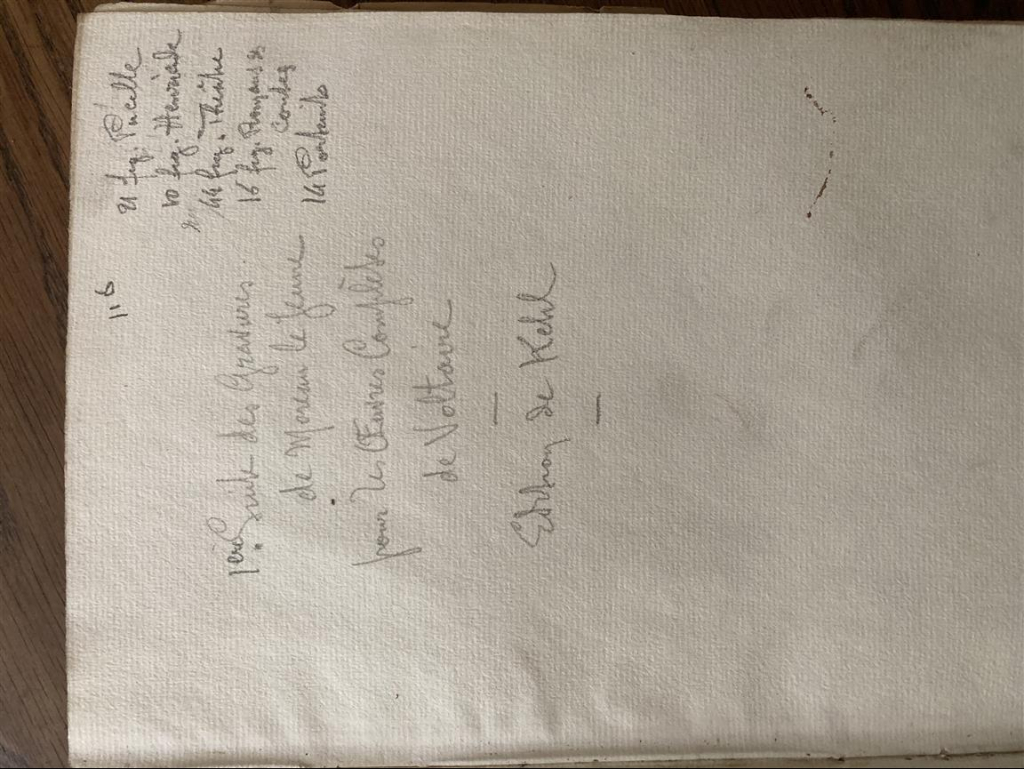 116
21 fig. Pucelle
10 fig. Henriade
44 fig. Théâtre
16 fig. Romans &
Contes
14 Portraits
1ère Suite des Gravures
de Moreau le Jeune
pour les Œuvres Complètes
de Voltaire
—
Edition de Kehl
—